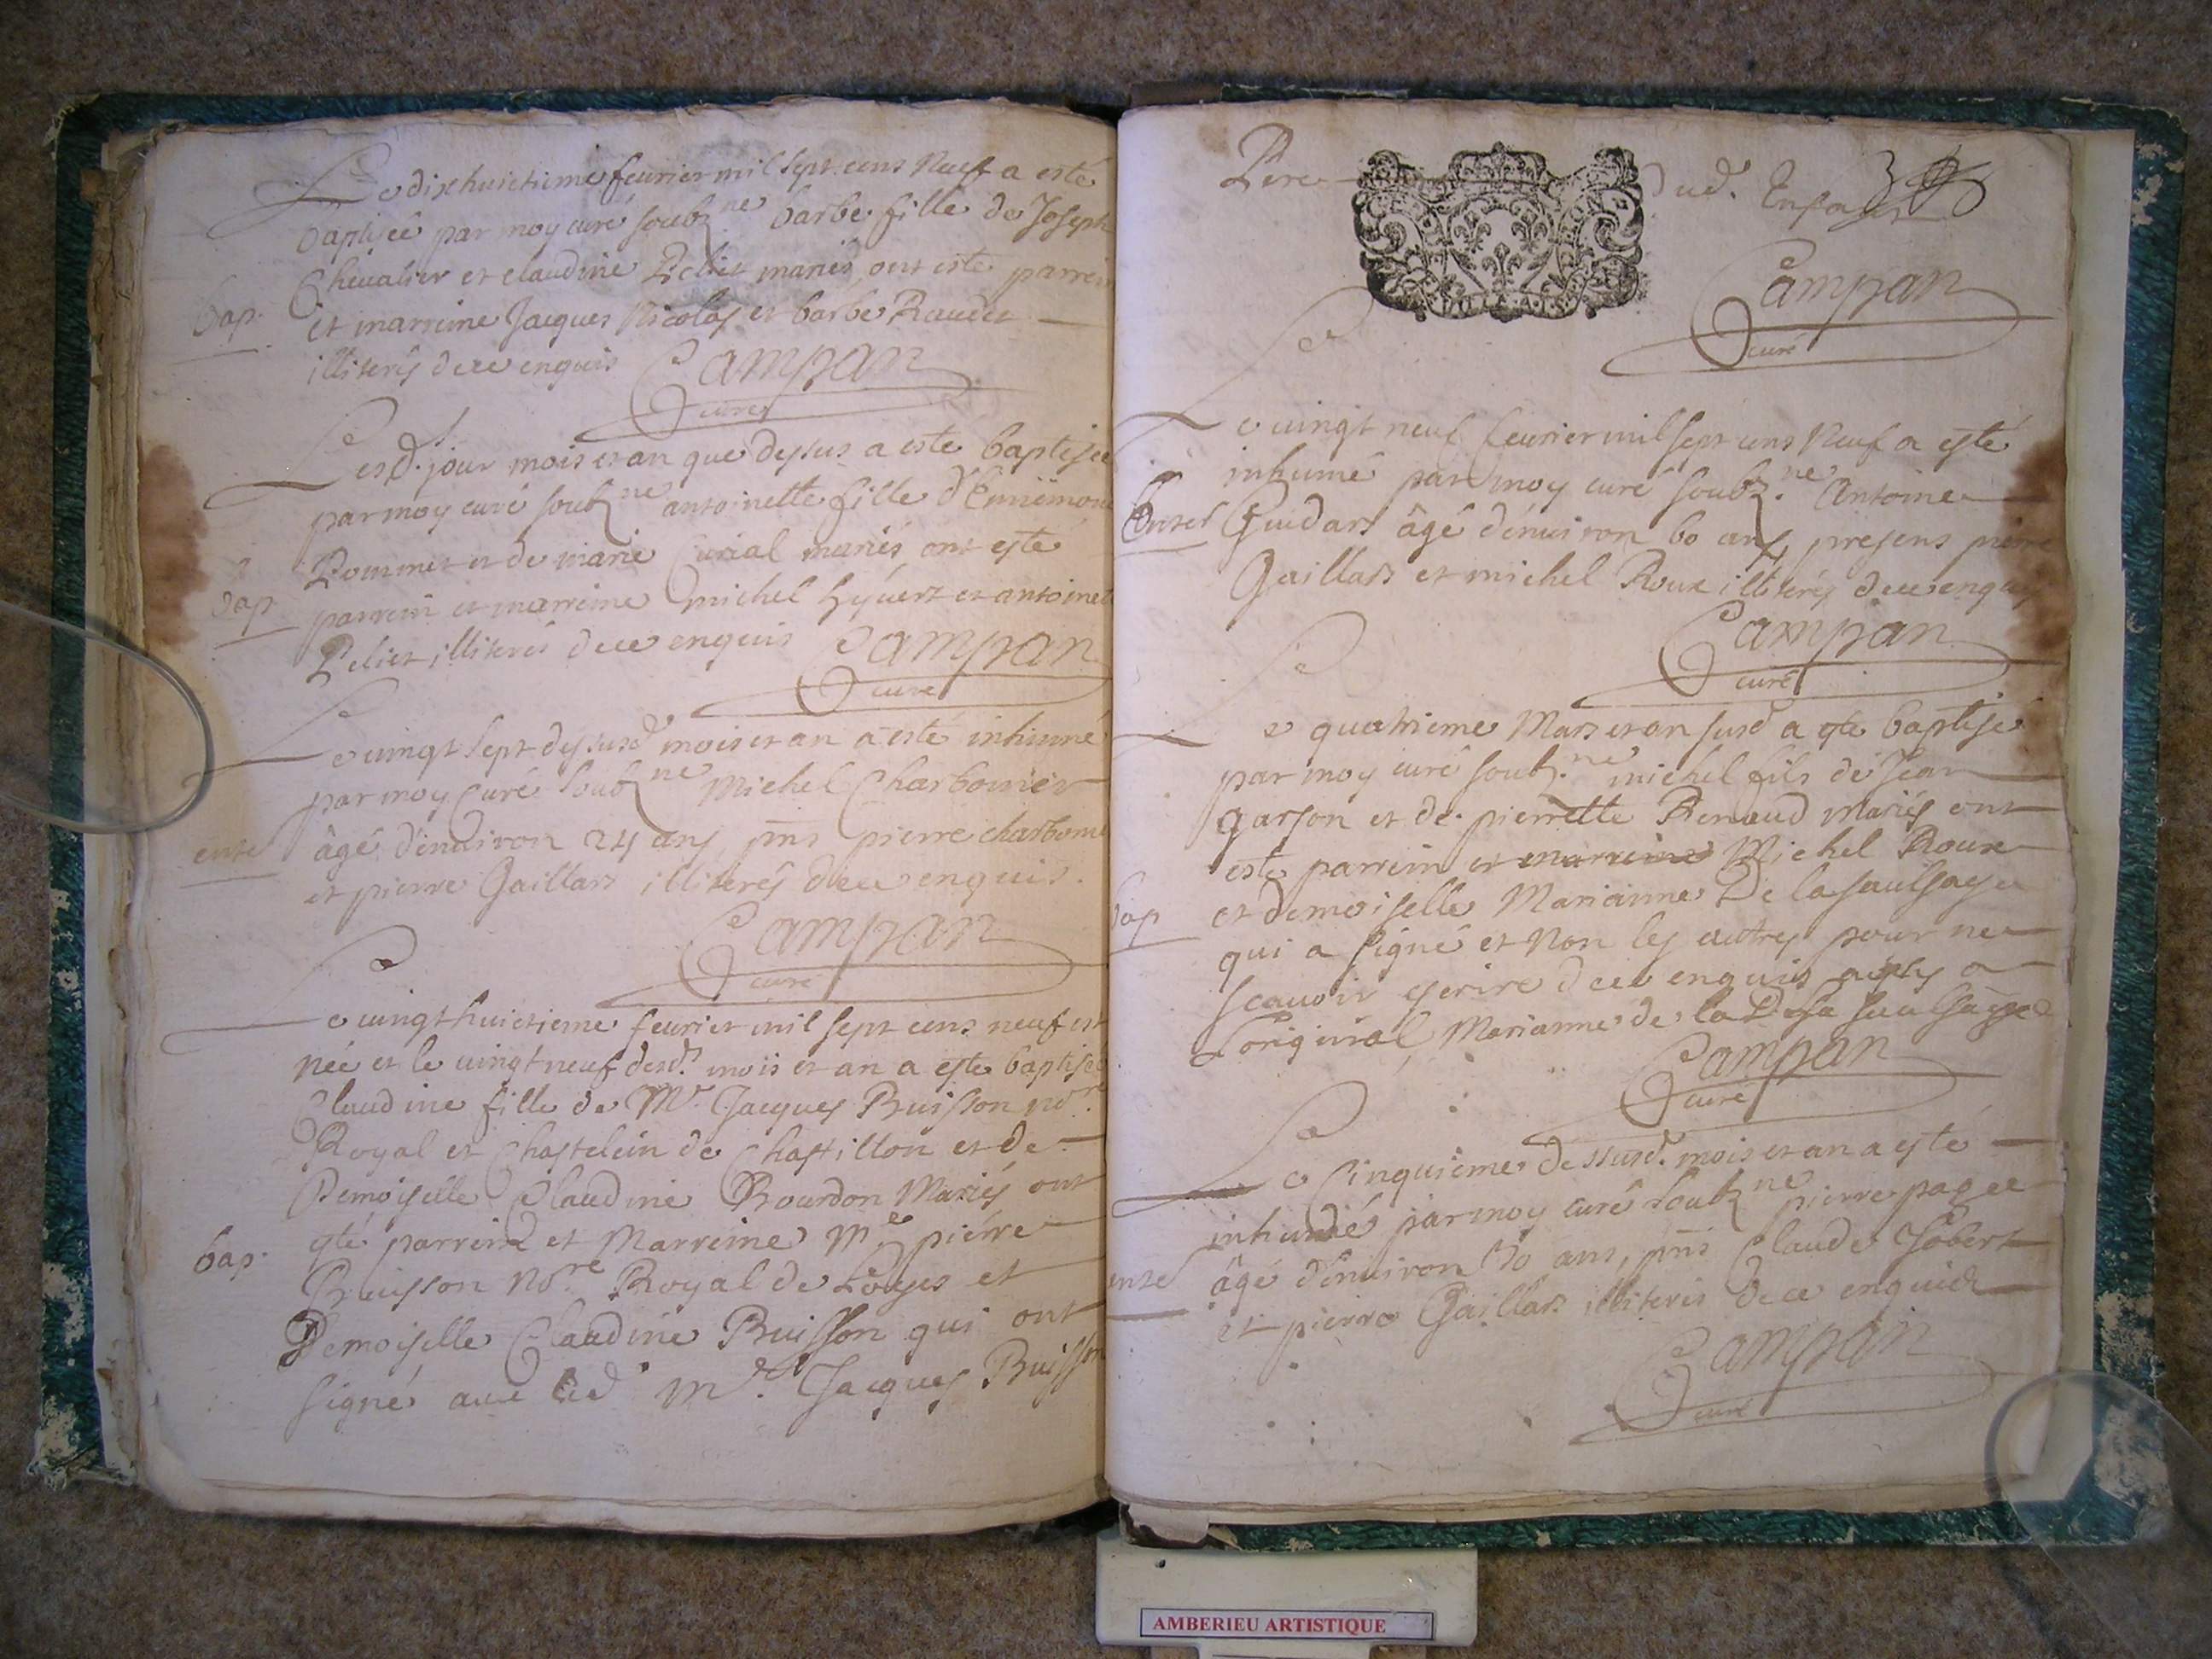 Le dixhuictieme feurier mil sept cens Neuf a esté
baptisée par moy curé soubz.ne barbe fille de Joseph
Chevalier et claudine Peliet mariés, ont esté parrein
bap. et marreine Jacques Nicolas et barbe Raudet
illiterés de ce enquis Campan
curé
Lesd. jour mois et an que dessus a este baptisée
par moy curé soubz.ne antoinette fille d'Ennemond
Pommet et de marie Curial mariés ont esté
bap parrein et marreine michel hyvert et antoinet
Peliet illiterés de ce enquis Campan
curé
Le vingt sept dessusd. mois et an a esté inhumé
par moy Curé soubz.ne Michel Charbonier
ente âgé d'enuiron 24 ans pns pierre charbonie
et pierre Gaillard illiterés de ce enquis.
Campan
curé
Le vingthuictieme feurier mil sept cens neuf est
née et le vingtneuf desd. mois et an a esté baptisée
Claudine fille de Mr. Jacques Buisson no.re
Royal et Chastelein de Chastillon et de
Demoiselle Claudine Bourdon Mariés ont
bap. esté parrein et Marreine Me pierre
Buisson No.re Royal de Loyes et
Demoiselle Claudine Buisson qui ont
signé avec led. Mr. Jacques Buisson
Pere dud. Enfant
Campan
curé
Le vingt neuf feurier mil sept cens Neuf a esté
inhumé par moy curé soubz.ne Antoine
Enter Guidard âgé d'enuiron 60 ans, presens pierre
Gaillard et michel Roux illiterés de ce enquis
Campan
curé
Le quatrieme Mars et an susd a esté baptisé
par moy curé soubz.ne michel fils de Jean
garson et de pierrette Renaud Mariés ont
esté parrein et marreine Michel Roux
bap et demoiselle Marianne De la saulsaye
qui a signé et Non les autres pour ne
scauoir escrire de ce enquis
L'original, Marianne de la Saulsaye
Campan
curé
Le Cinquieme dessusd. mois et an a esté
inhumé par moy curé soubz.ne pierre pagee
ente âgé d'enuiron 30 ans, pns Claude Jobert
et pierre Gaillard illiterés de ce enquis
Campan
curé
AMBERIEU ARTISTIQUE